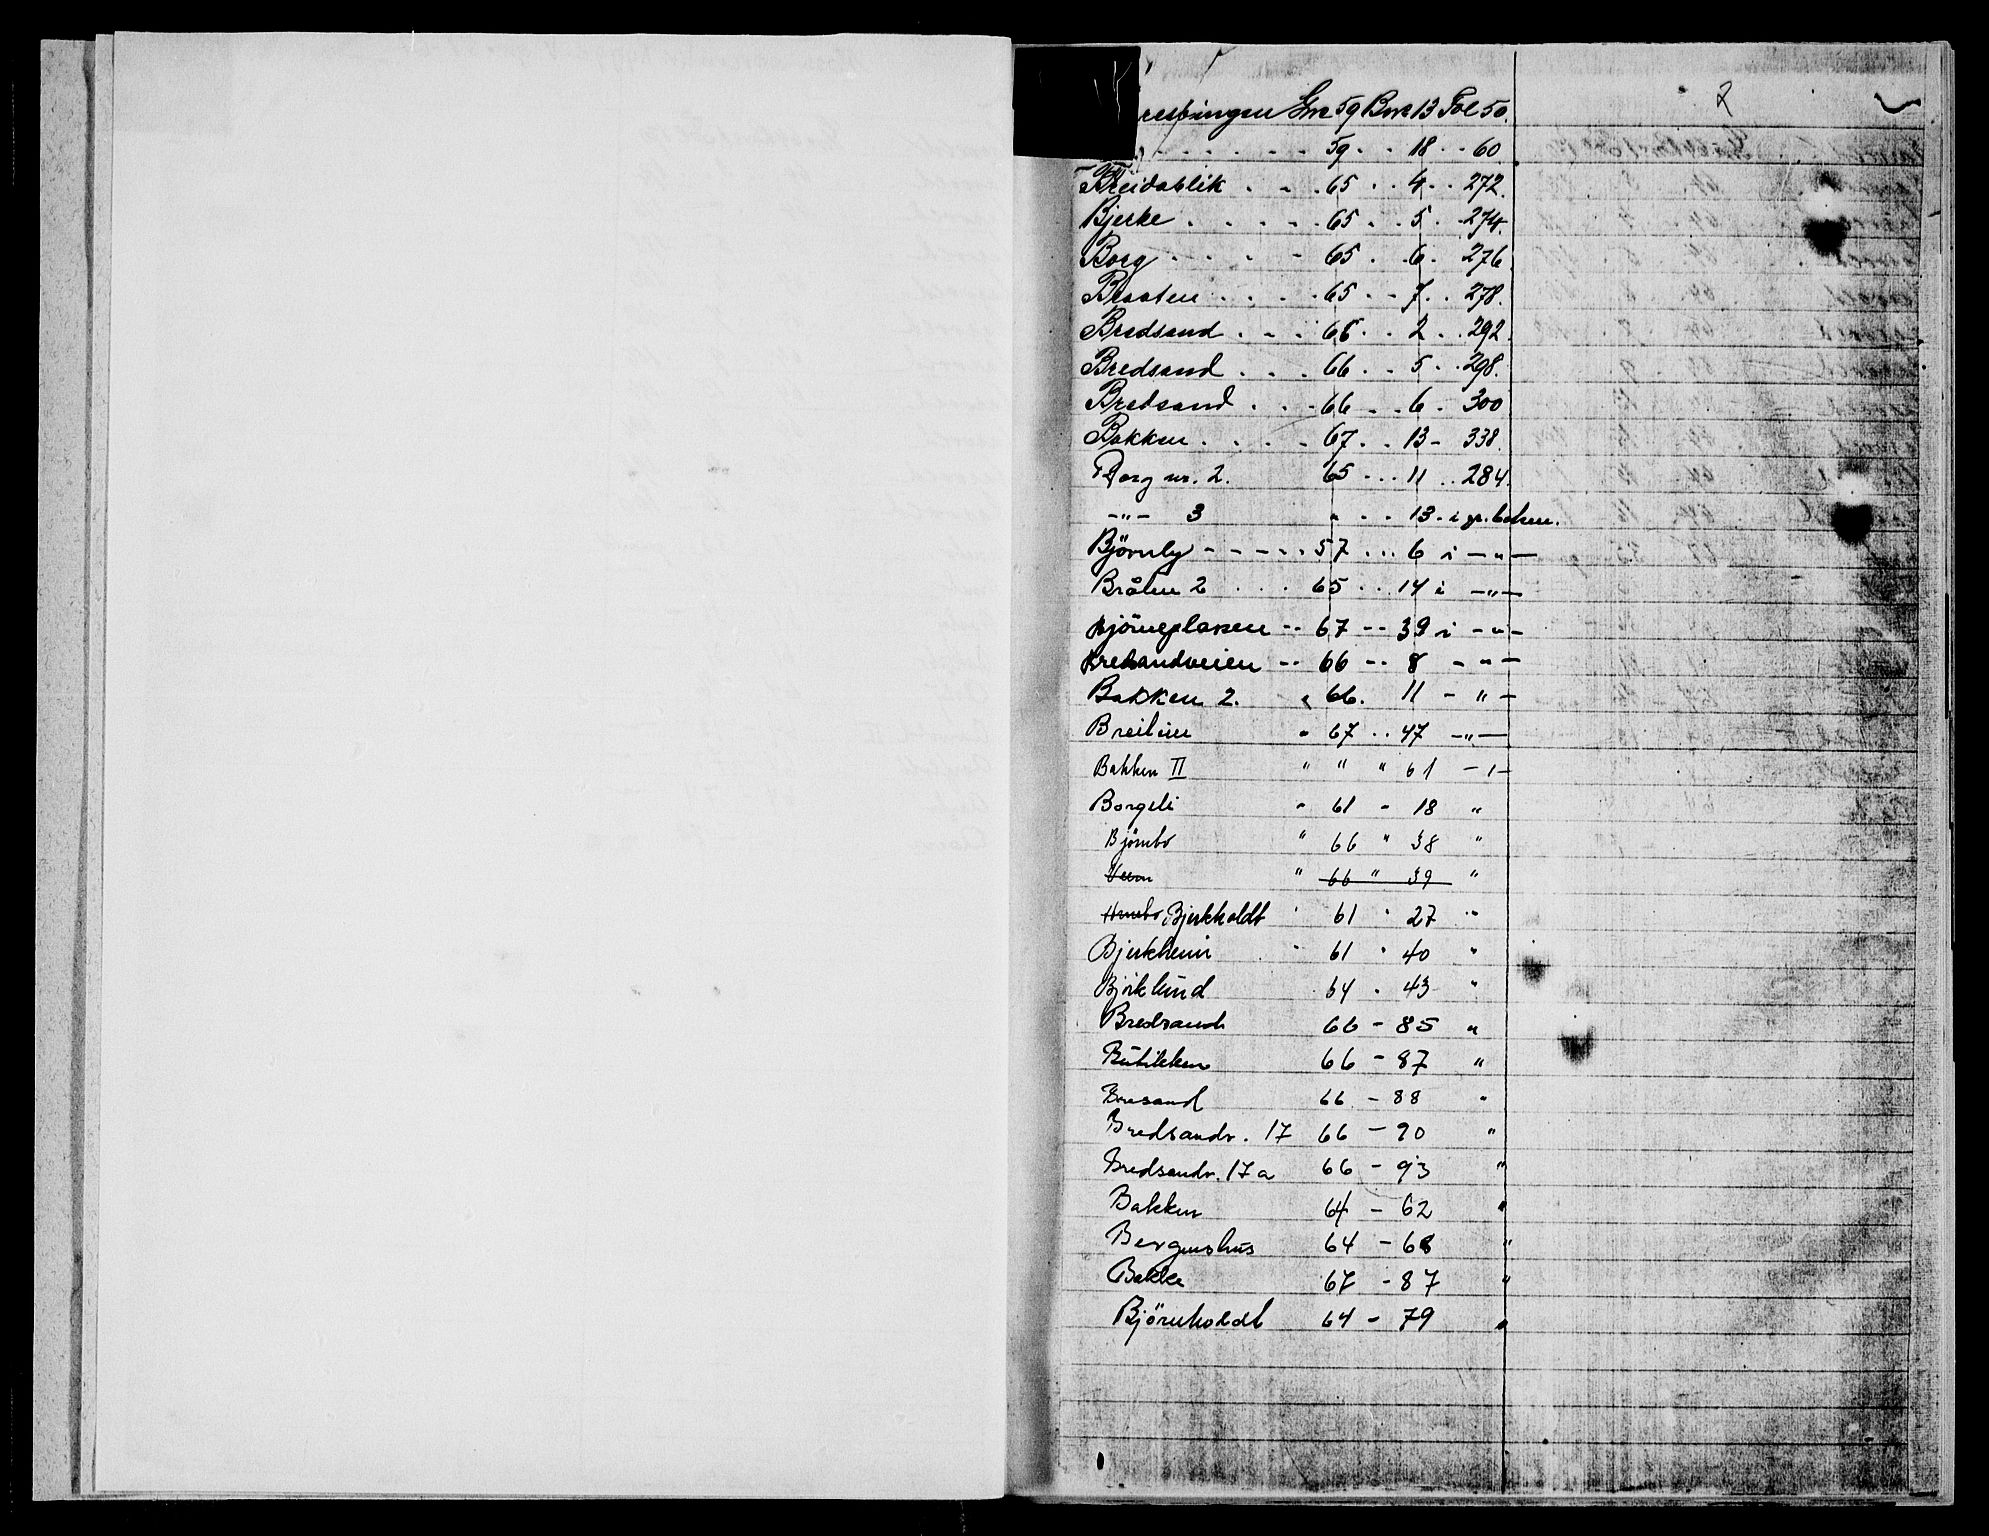 2
Gnr 59 Bnr 13 Fol 50.
59 . . 18 . . 60
Breidablik . . . 65 . . 4 . . 272.
Bjerke . . . . . 65 . . 5 . . 274.
Borg . . . . 65 . . 6 . 276
Braaten . . . . 65 . . 7 . . 278.
Bredsand . . . 66 . . 2 . . 292.
Bredsand . . . 66 . . 5 . . 298.
Bredsand . . . 66 . . 6 . 300
Bakken . . . . 67 . . 13 - 338.
Borg nr. 2. 65 . . . 11 . . 284.
-"- 3 " . . 13 . i gr. boken.
Björnly - - - - . . 57 . . . 6 i -"-
Bråten 2 . . . 65 . . 14 i -"-
Björneplassen - - 67 - - 39 i -"-
Bresandveien - - 66 - - 8 -"-
Bakken 2. " 66. 11 -"-
Breilien " 67 . . 47 -"-
Bakken II " " " 61 -"-
Borgeli " 61 - 18 "
Björnbo " 66 " 38 "
" 66 " 39 "
Bjerkholdt " 61 " 27 "
Bjerkheim " 61 " 40 "
Björklund 64 . 43 "
Bredsand 66 - 85 "
Butikken 66 - 87 "
Bresand 66 - 88 "
Bredsandv. 17 66 - 90 "
Bredsandv. 17a 66 - 93 "
Bakken 64 - 62 "
Bergenshus 64 - 68 "
Bakke 67 - 87 "
Björnholdt 64 - 79 "